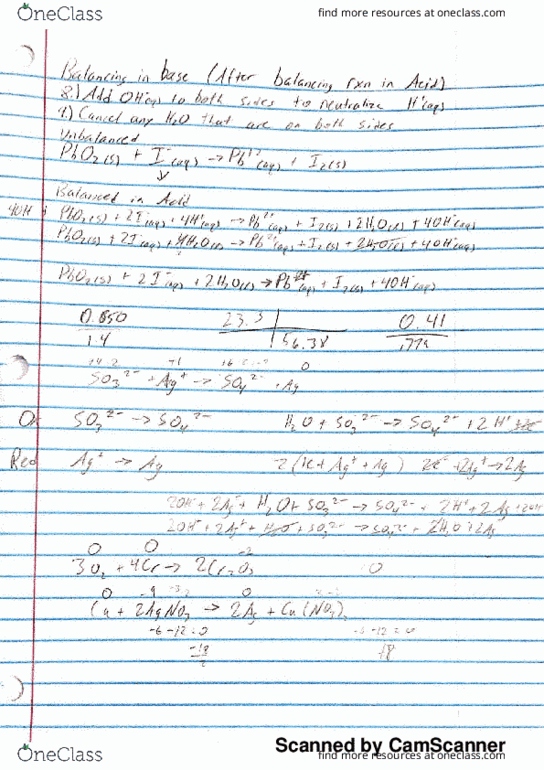 OneClass find more resources at oneclass.com
Balancing in base (After balancing rxn in Acid)
8.) Add OH⁻(aq) to both sides to neutralize H⁺(aq)
9.) Cancel any H₂O that are on both sides
Unbalanced
PbO₂(s) + I⁻(aq) → Pb²⁺(aq) + I₂(s)
↓
Balanced in Acid
4OH⁻ + PbO₂(s) + 2I⁻(aq) + 4H⁺(aq) → Pb²⁺(aq) + I₂(s) + 2H₂O(l) + 4OH⁻(aq)
PbO₂(s) + 2I⁻(aq) + 4H₂O(l) → Pb²⁺(aq) + I₂(s) + 2H₂O(l) + 4OH⁻(aq)
PbO₂(s) + 2I⁻(aq) + 2H₂O(l) → Pb²⁺(aq) + I₂(s) + 4OH⁻(aq)
0.850 23.5 0.41
1.4 56.38
+1 0
SO₃²⁻ + Ag⁺ → SO₄²⁻ + Ag
Ox SO₃²⁻ → SO₄²⁻ H₂O + SO₃²⁻ → SO₄²⁻ + 2H⁺
Red Ag⁺ → Ag 2(1e + Ag⁺ → Ag) + 2Ag⁺ → 2Ag
2OH⁻ + 2Ag⁺ + H₂O + SO₃²⁻ → SO₄²⁻ + 2H⁺ + 2Ag + 2OH⁻
2OH⁻ + 2Ag⁺ + H₂O + SO₃²⁻ → SO₄²⁻ + 2H₂O + 2Ag
0 0 -2
3O₂ + 4Cr → 2Cr₂O₃
0 0
Cu + 2AgNO₃ → 2Ag + Cu(NO₃)₂
-6 -12 = 0 -12 = 0
-18 18
2
Scanned by CamScanner
OneClass find more resources at oneclass.com